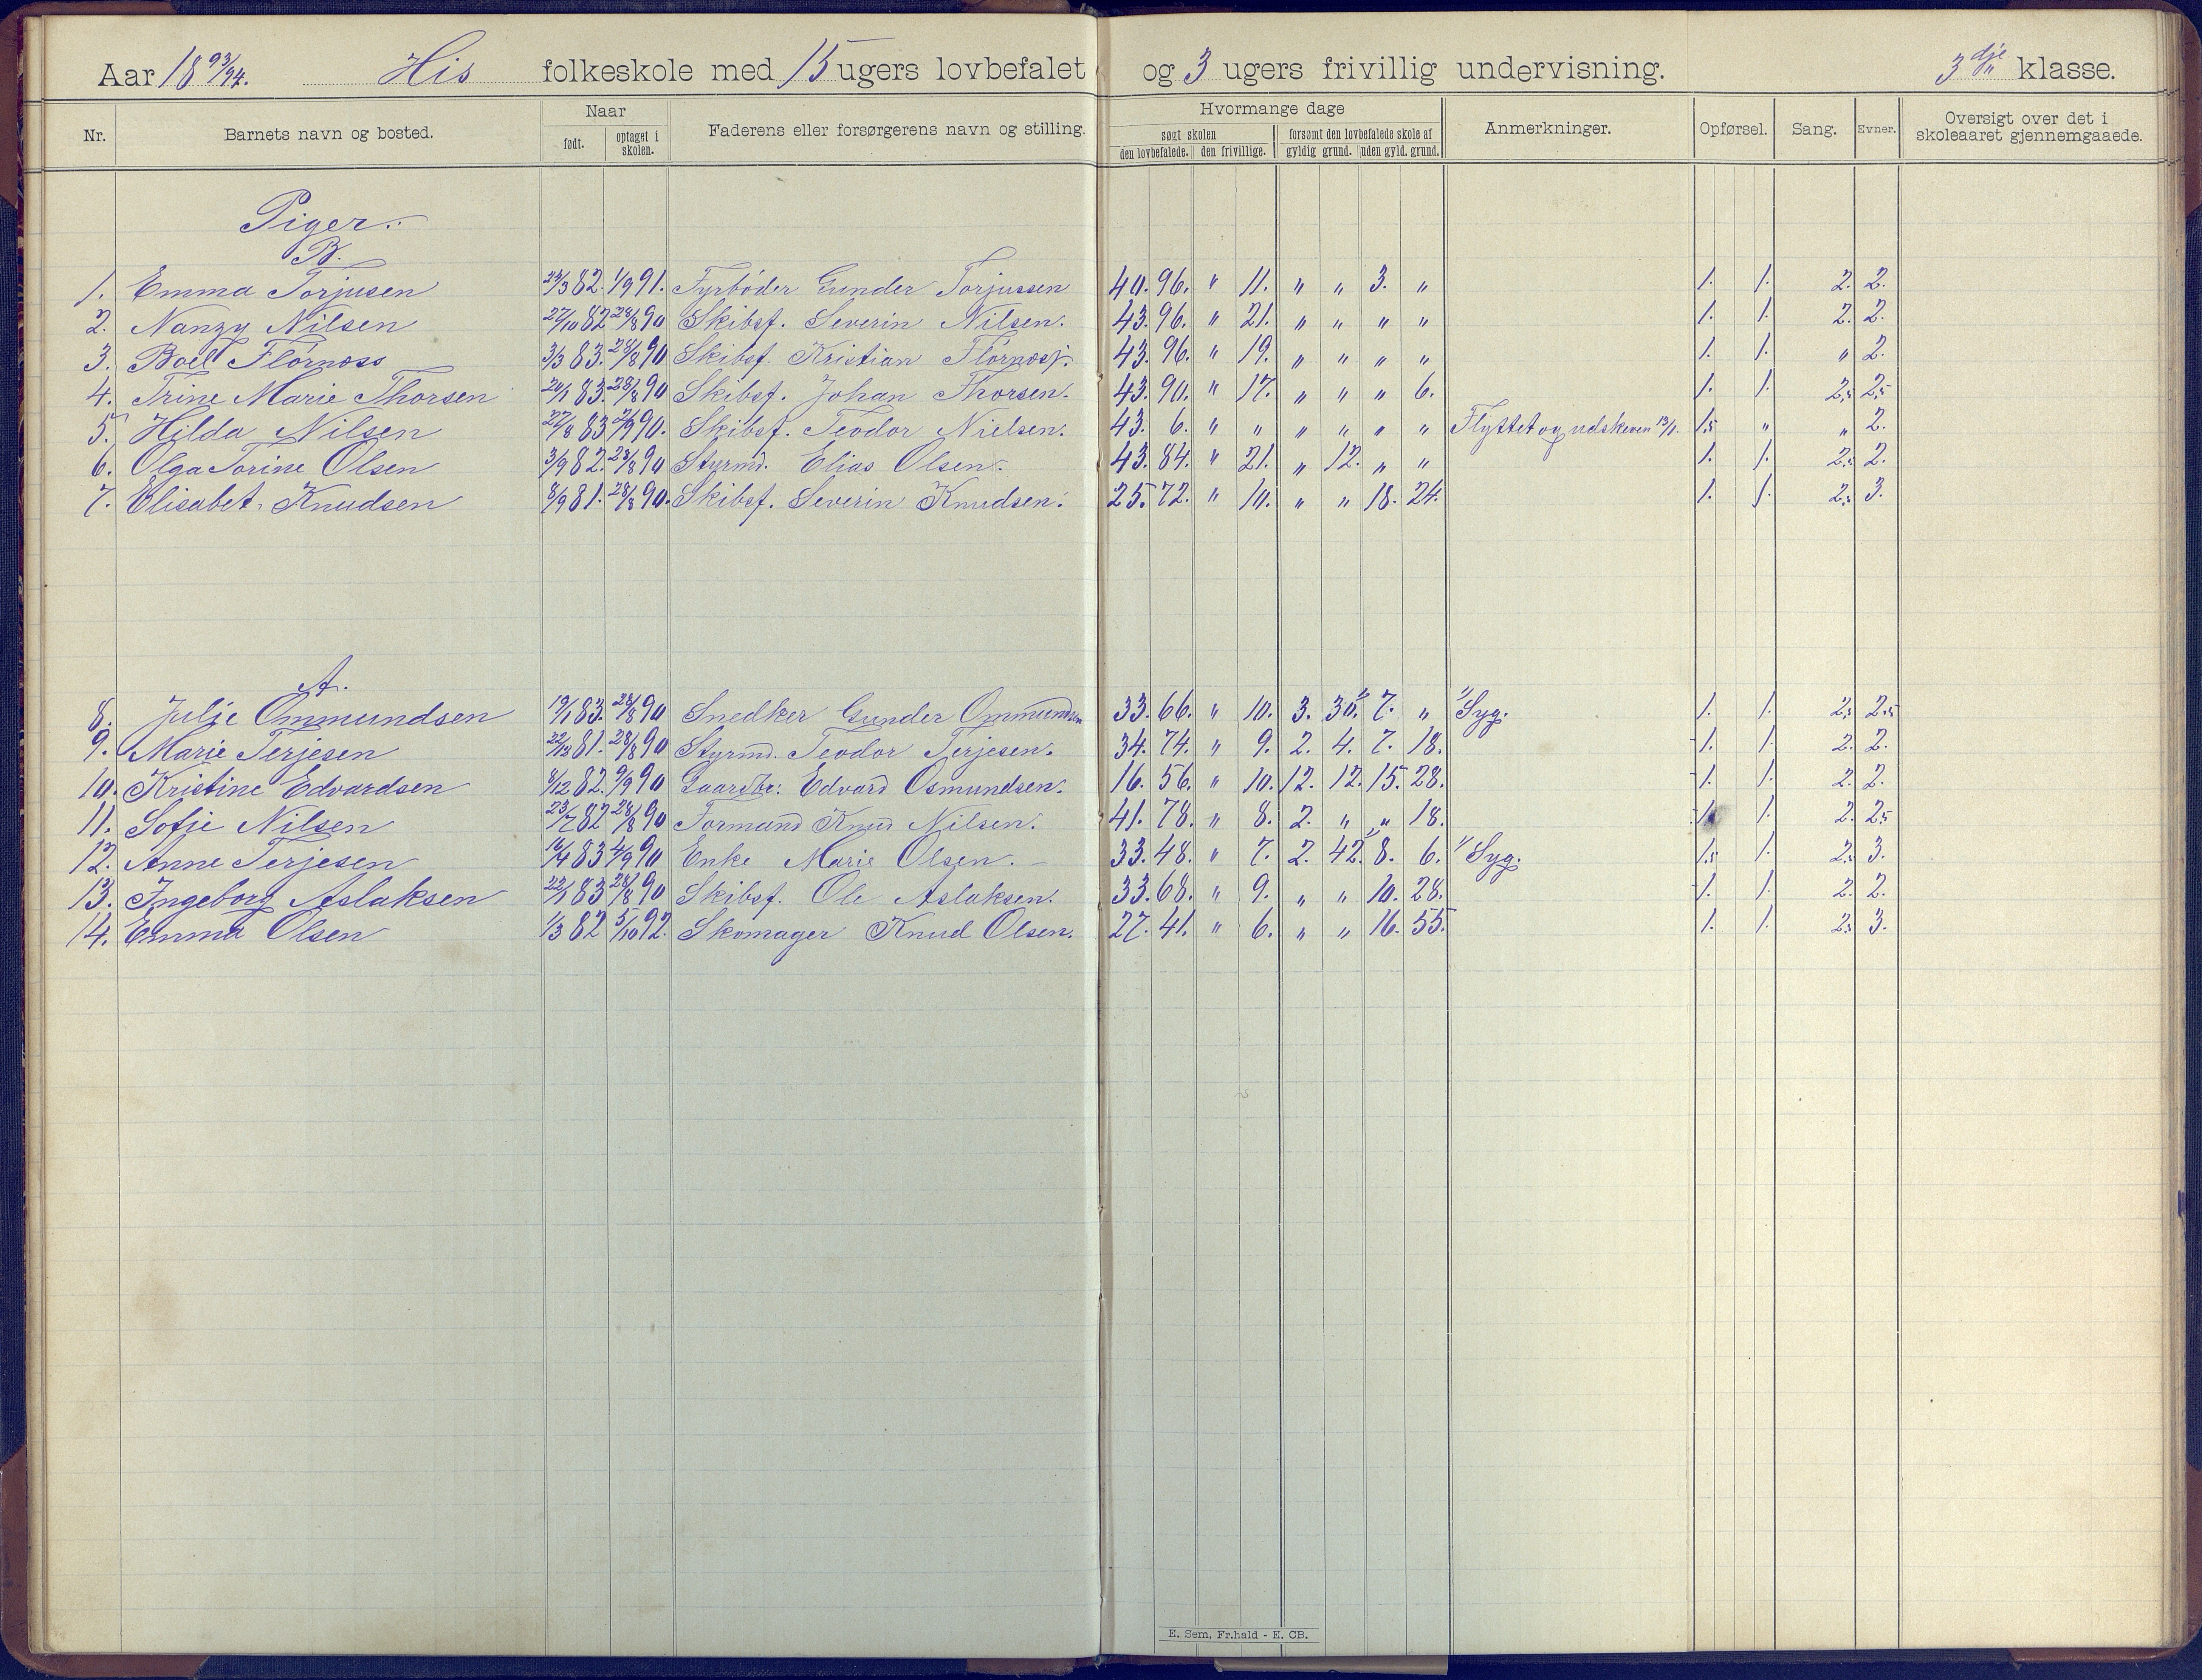 Aar 18 93/94. His folkeskole med 15 ugers lovbefalet og 3 ugers frivillig undervisning. 3dje klasse.
Nr. Barnets navn og bosted. Naar født. optaget i skolen. Faderens eller forsørgerens navn og stilling. Hvormange dage søgt skolen den lovbefalede. den frivillige. forsømt den lovbefalede skole af gyldig grund. uden gyld. grund. Anmerkninger. Opførsel. Sang. Evner. Oversigt over det i skoleaaret gjennemgaaede.
Piger.
B.
1. Emma Torjusen 23/3 82. 1/9 91. Fyrbøder Gunder Torjussen 40. 96. " 11. " " 3. " 1. 1. 2. 2.
2. Nanzy Nilsen 27/10 82 28/8 90 Skibsf. Severin Nilsen. 43. 96. " 21. " " " " 1. 1. 2. 2.
3. Boel Flørnæss 3/3 83. 28/8 90 Skibsf. Kristian 43. 96. " 19. " " " " 1. 1. " 2.
4. Trine Marie Thorsen 20/1 83. 28/8 90 Skibsf. Johan Thorsen. 43. 90. " 17. " " " 6. 1. 1. 2,5 2,5
5. Hilda Nilsen 27/8 83 90. Skibsf. Teodor Nielsen. 43. 6. " " " " " " Flyttet og udskeven 13/1. 1.5 " " 2.
6. Olga Torine Olsen 3/9 82. 28/8 90 Styrmd. Elias Olsen. 43. 84. " 21. " 12. " " 1. 1. 2.5 2.
7. Elisabet Knudsen 8/9 81. 28/8 90. Skibsf. Severin Knudsen. 25. 72. " 10. " " 18. 24. 1. 1. 2.5 3.
A.
8. Julie Ommundsen 19/1 83. 28/8 90 Snedker Gunder Ommundsen 33. 66. " 10. 3. 30. 1) 7. " 1) Syg. 1. 1. 2,5 2.5
9. Marie Terjesen 22/12 81. 28/8 90 Styrmd. Teodor Terjesen. 34. 74. " 9. 2. 4. 7. 18. 1. 1. 2. 2.
10. Kristine Edvardsen 8/12 82. 9/9 90 Gaardbr. Edvard Osmundsen. 16. 56. " 10. 12. 12. 15. 28. 1. 1. 2. 2.
11. Sofie Nilsen 23/7 82 28/8 90 Formand Knud Nilsen. 41. 78. " 8. 2. " " 18. 1. 1. 2. 2.5
12. Anne Terjesen 16/4 83 4/9 90 Enke Marie Olsen. 33. 48. " 7. 2. 42. 1) 8. 6. 1) Syg. 1.5 1. 2.5 3.
13. Ingeborg Aslaksen 22/1 83 28/8 90 Skibsf. Ole Aslaksen. 33. 68. " 9. " " 10. 28. 1. 1. 2. 2.
14. Emma Olsen 1/3 82 5/10 92. Skomager Knud Olsen. 27. 41. " 6. " " 16. 55. 1. 1. 2.5 3.
E. Sem, Fr.hald - E. CB.